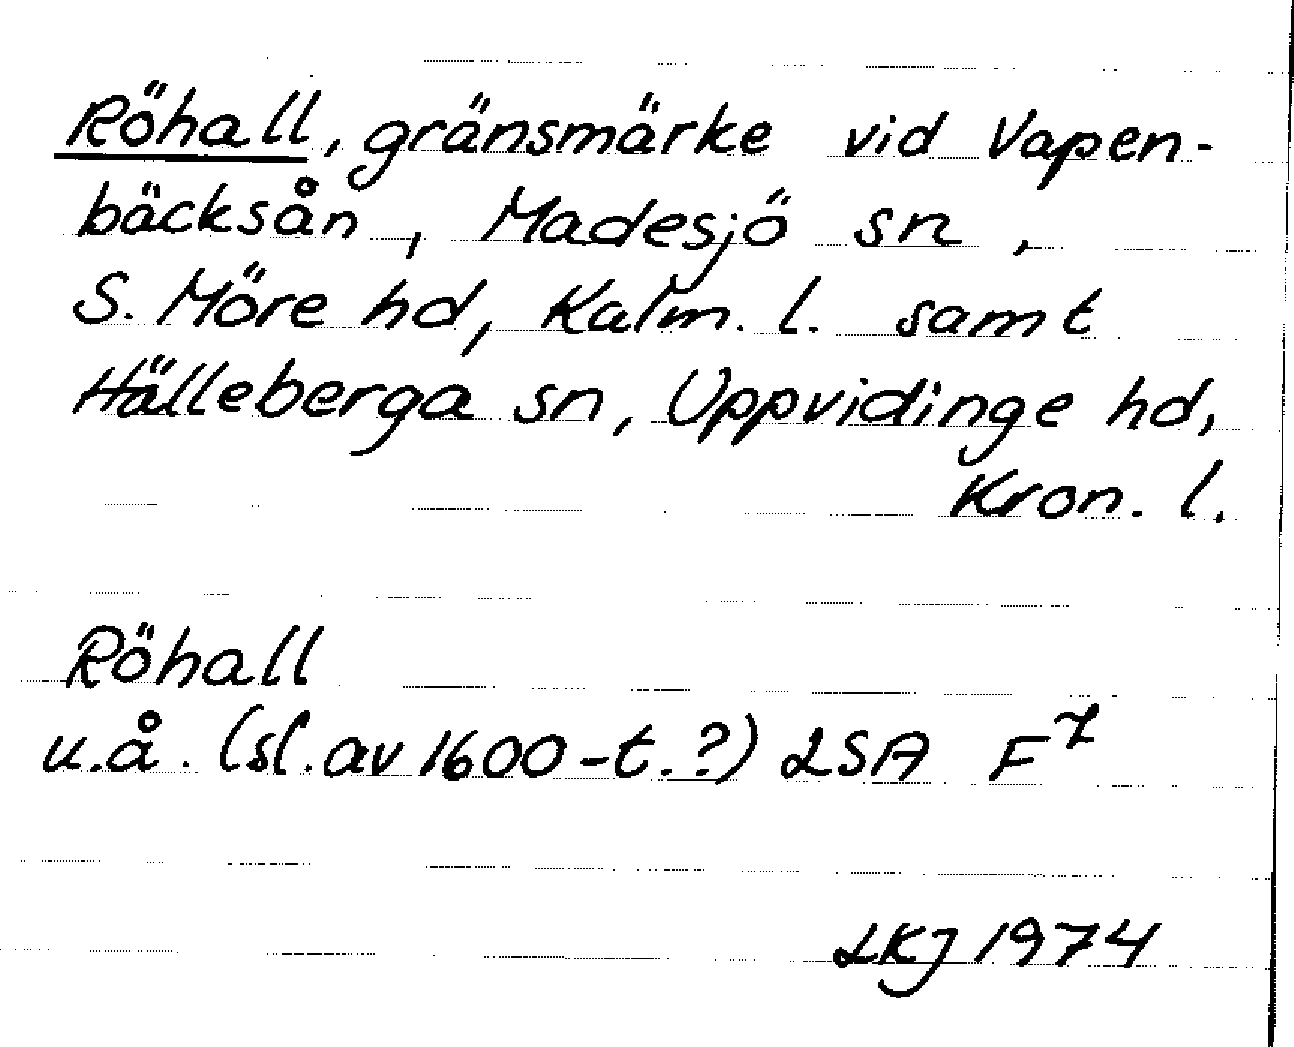 Röhall, gränsmärke vid Vapen-
bäcksån, Madesjö sn,
S. Möre hd, Kalm. l. samt
Hälleberga sn, Uppvidinge hd,
Kron. l.
Röhall
u.å. (sl. av 1600-t.?) LSA F⁷
LKJ 1974